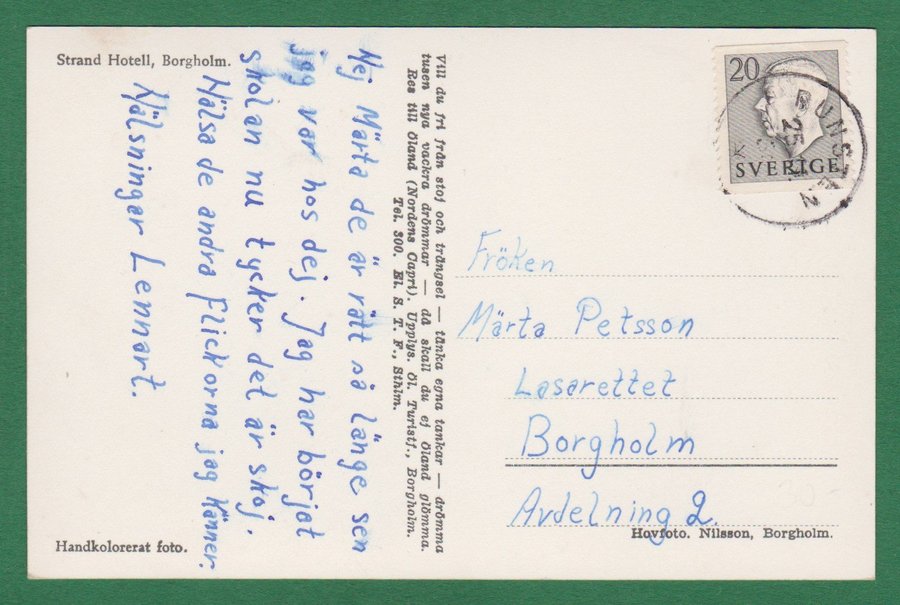 Strand Hotell, Borgholm.
Nej Märta de är rätt så länge sen
jag var hos dej. Jag har börjat
skolan nu tycker det är skoj.
Hälsa de andra flickorna jag känner.
Hälsningar Lennart.
Handkolorerat foto.
Vill du fri från stoj och trängsel — tänka egna tankar — drömma
tusen nya vackra drömmar — då skall du ej Öland glömma.
Res till Öland (Nordens Capri). Upplys. Öl. Turistf., Borgholm.
Tel. 300. El. S. T. F., Sthlm.
20
SVERIGE
Fröken
Märta Petsson
Lasarettet
Borgholm
Avdelning 2.
Hovfoto. Nilsson, Borgholm.